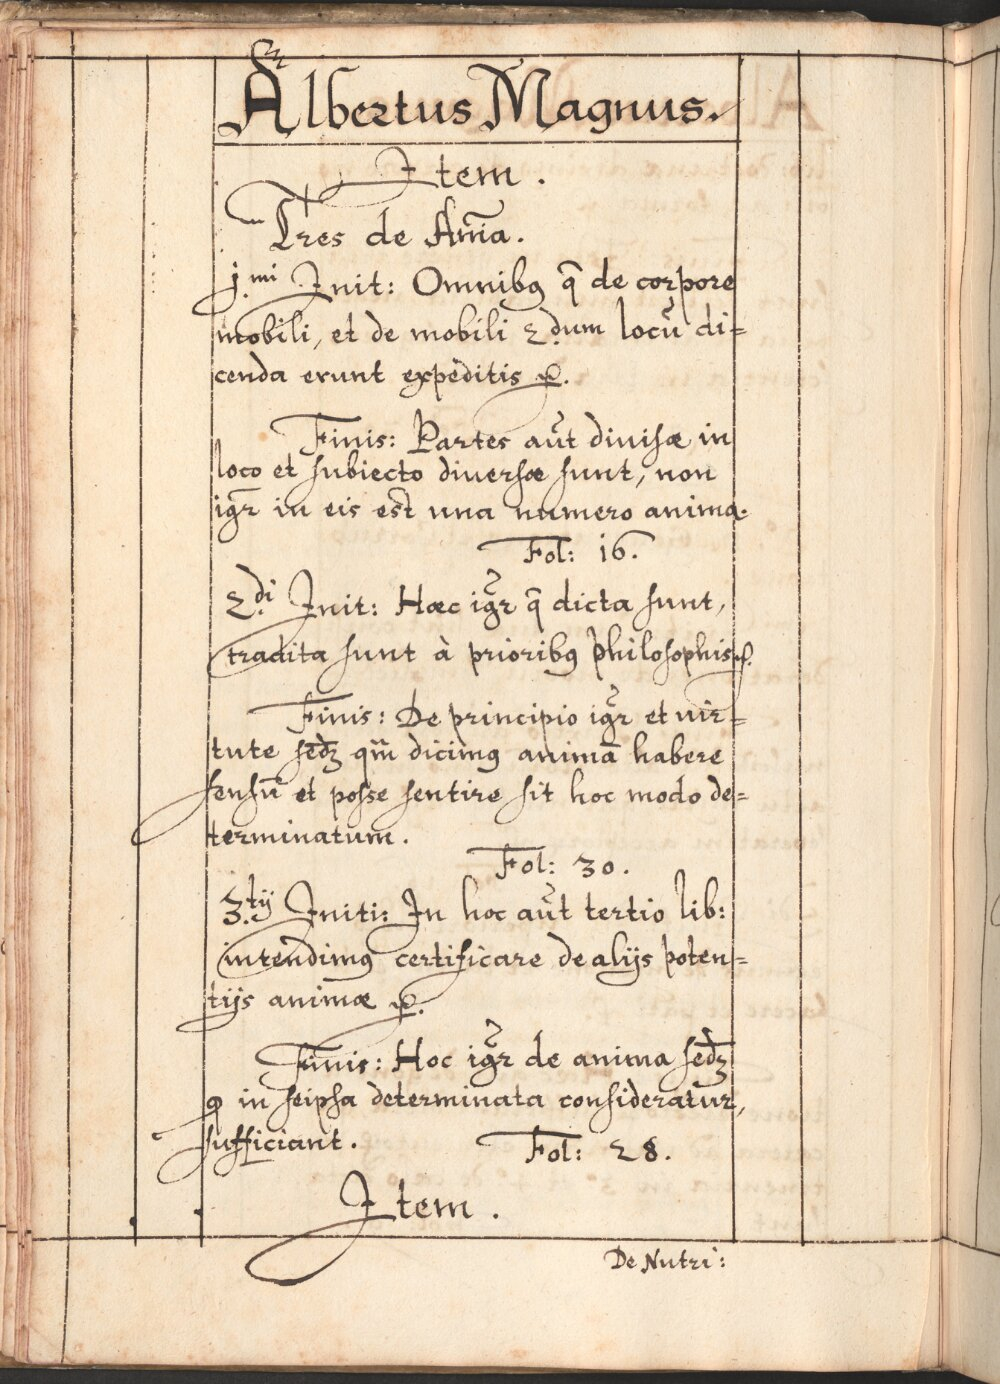 Albertus Magnus.
Item.
Tres de Aīa.
j.mi Init: Omnibꝯ q̄ de corpore
mobili, et de mobili 2.dum locū di=
cenda erunt expeditis ꝛc.
Finis: Partes aūt diuisæ in
loco et subiecto diuersæ sunt, non
igr̄ in eis est una numero anima.
Fol: 16.
2.di Init: Hæc igr̄ q̄ dicta sunt,
tradita sunt à prioribꝯ philosophis ꝛc.
Finis: De principio igr̄ et uir=
tute sed₃ qm̄ dicimꝯ animā habere
sensū et posse sentire sit hoc modo de=
terminatum.
Fol: 30.
3.tij Initi: In hoc aūt tertio lib:
intendimꝯ certificare de alijs poten=
tijs animæ ꝛc.
Finis: Hoc igr̄ de anima sed₃
ꝙ in seipsa determinata consideratur,
sufficiant.
Fol: 28.
Item.
De Nutri: